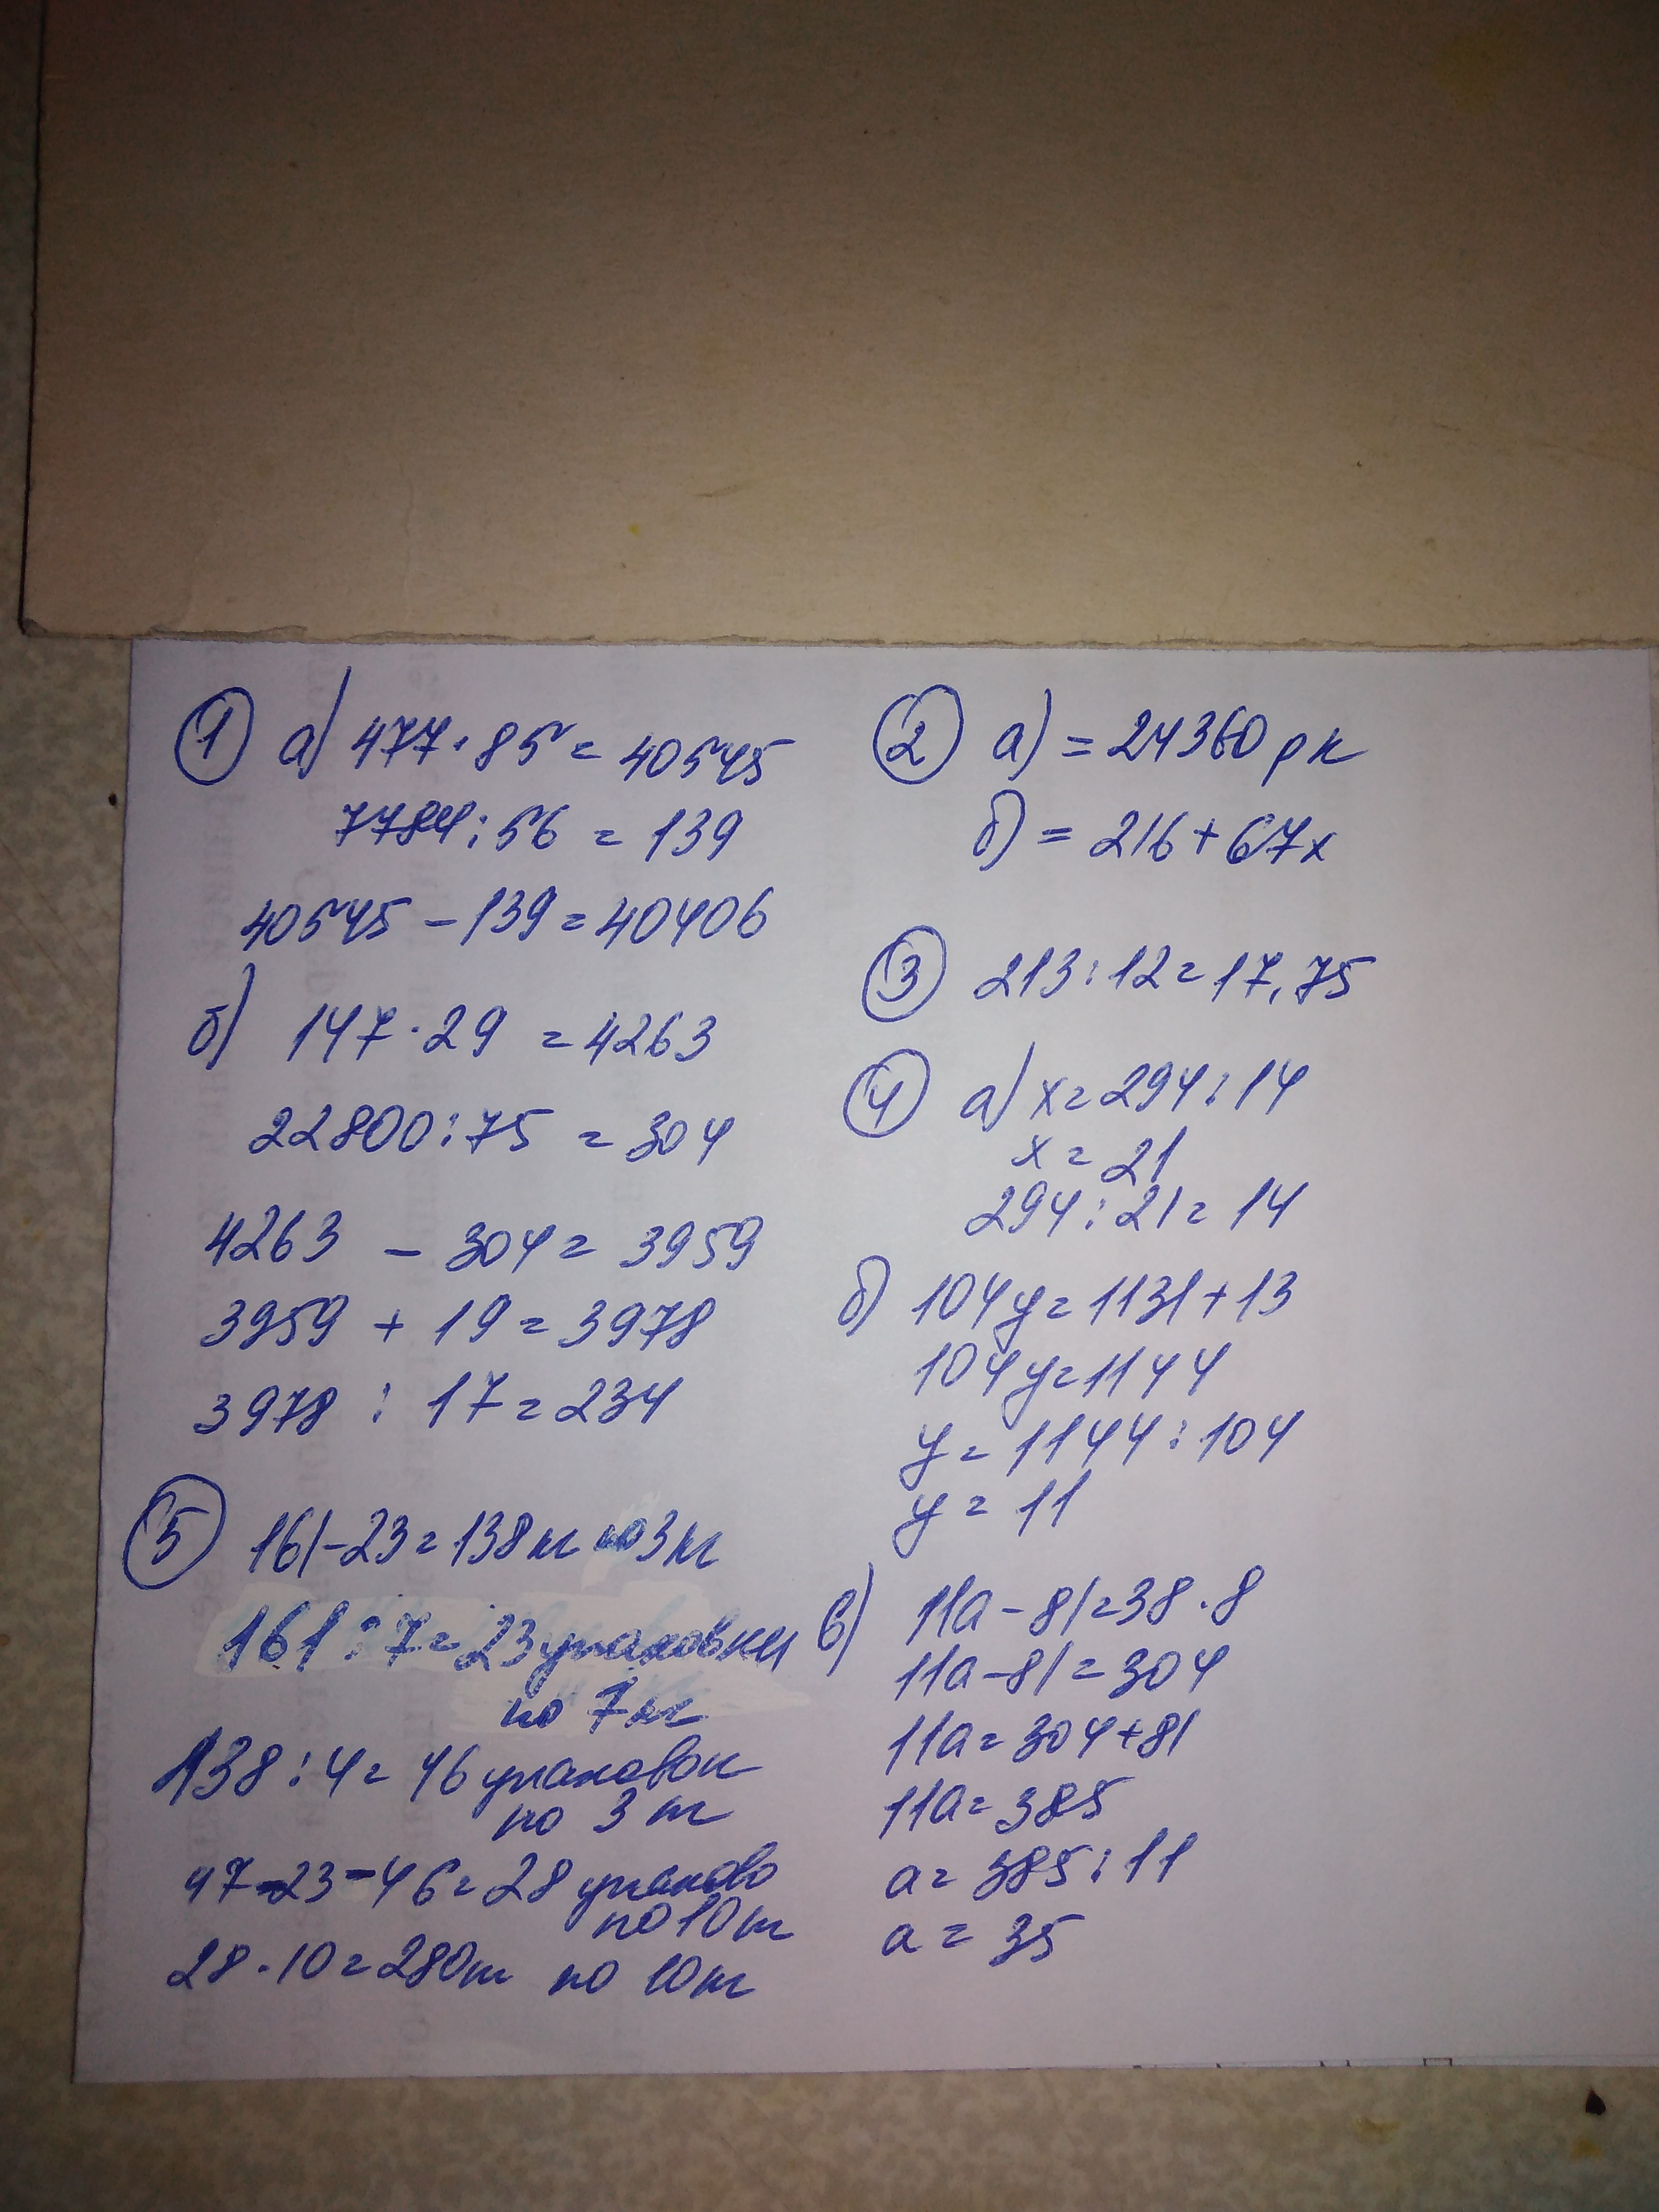 ① а) 477 · 85 = 40545
7784 : 56 = 139
40545 – 139 = 40406
б) 147 · 29 = 4263
22800 : 75 = 304
4263 – 304 = 3959
3959 + 19 = 3978
3978 : 17 = 234
⑤ 161 – 23 = 138 кг по 3 кг
161 : 7 = 23 упаковки
по 7 кг
138 : 4 = 46 упаковок
по 3 кг
97 – 23 – 46 = 28 упаково
по 10 кг
28 · 10 = 280 кг по 10 кг
② а) = 24360 рк
б) = 216 + 67х
③ 213 : 12 = 17,75
④ а) х = 294 : 14
х = 21
294 : 21 = 14
б) 104у = 1131 + 13
104у = 1144
у = 1144 : 104
у = 11
в) 11а – 81 = 38 · 8
11а – 81 = 304
11а = 304 + 81
11а = 385
а = 385 : 11
а = 35